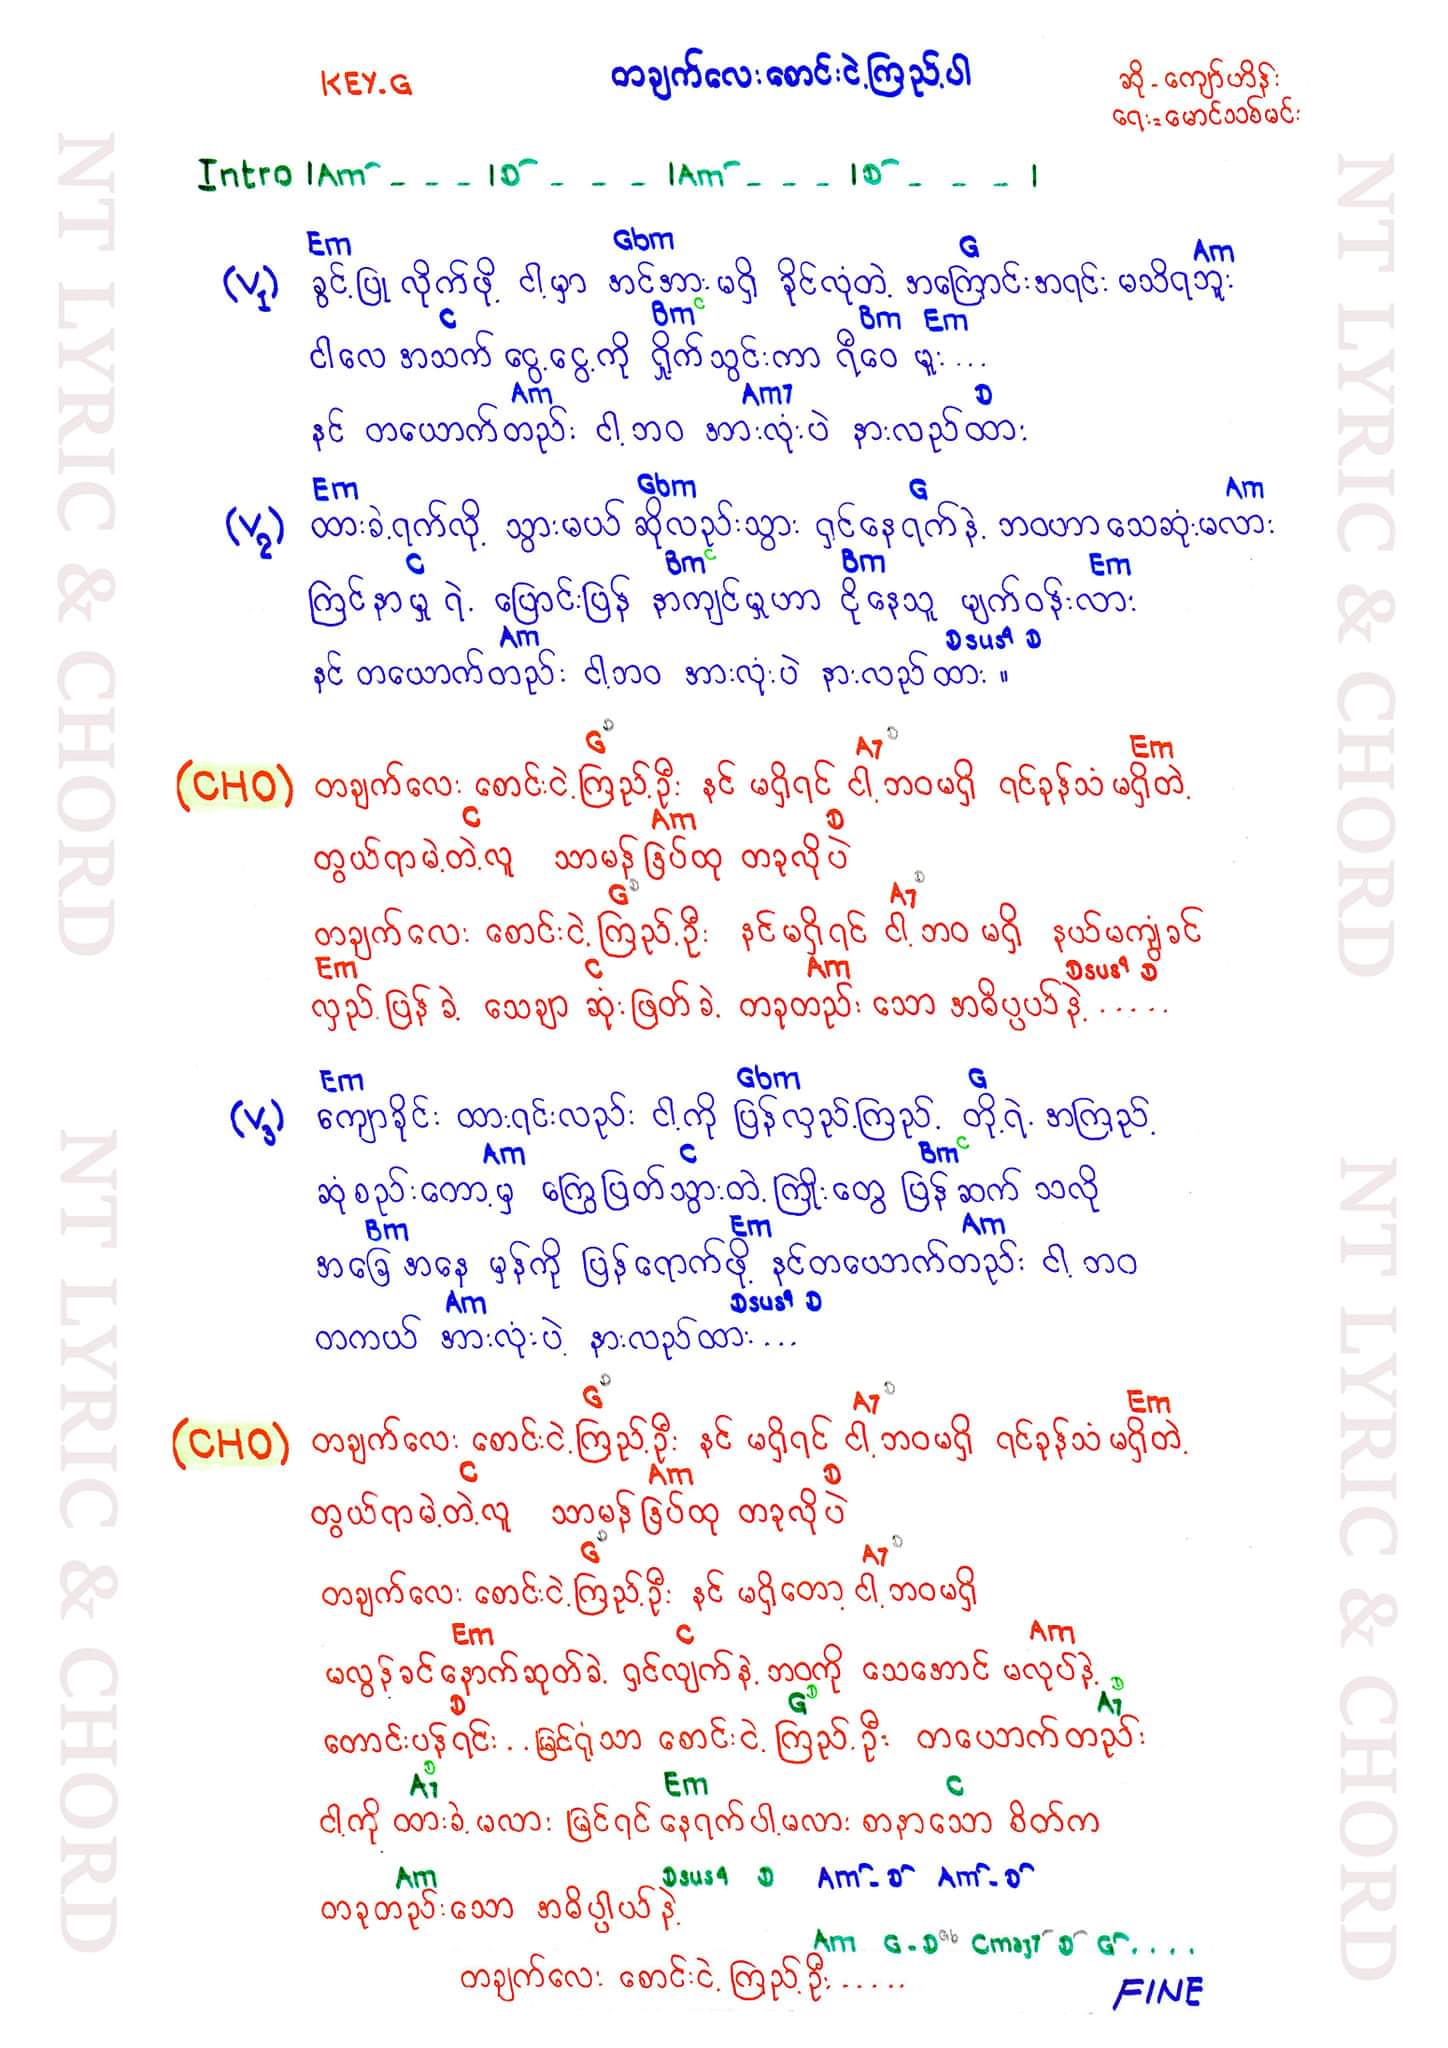 KEY.G
တချက်လေးစောင်းငဲ့ကြည့်ပါ
ဆို - ကျော်ဟိန်း
ရေး = မောင်သစ်မင်း
Intro | Am - - - | D - - - | Am - - - | D - - - |
Em Gbm G Am
(V1) ခွင့်ပြု လိုက်ဖို့ ငါ့မှာ အင်အားမရှိ ခိုင်လုံတဲ့ အကြောင်းအရင်း မသိရဘူး
C Bm C Bm Em
ငါလေ အသက် ငွေ့ငွေ့ကို ရှိုက်သွင်းကာ ရီဝေ မူး ...
Am Am7 D
နင် တယောက်တည်း ငါ့ဘဝ အားလုံးပဲ နားလည်ထား
Em Gbm G Am
(V2) ထားခဲ့ရက်လို့ သွားမယ် ဆိုလည်းသွား ရှင်နေရက်နဲ့ ဘဝဟာ သေဆုံးမလား
C Bm C Bm Em
ကြင်နာမှု ရဲ့ ပြောင်းပြန် နာကျင်မှုဟာ ငိုနေသူ မျက်ဝန်းလား
Am Dsus4 D
နင် တယောက်တည်း ငါ့ဘဝ အားလုံးပဲ နားလည်ထား ။
G D A7 D Em
(CHO) တချက်လေး စောင်းငဲ့ကြည့်ဦး နင် မရှိရင် ငါ့ဘဝမရှိ ရင်ခုန်သံ မရှိတဲ့
C Am D
တွယ်ရာမဲ့တဲ့လူ သာမန်ဒြပ်ထု တခုလိုပဲ
G D A7 D
တချက်လေး စောင်းငဲ့ကြည့်ဦး နင်မရှိရင် ငါ့ဘဝ မရှိ နယ်မကျွံခင်
Em C Am Dsus4 D
လှည့်ပြန်ခဲ့ သေချာ ဆုံးဖြတ်ခဲ့ တခုတည်း သော အဓိပ္ပယ်နဲ့ .....
Em Gbm G
(V3) ကျောခိုင်း ထားရင်းလည်း ငါ့ကို ပြန်လှည့်ကြည့် တို့ရဲ့ အကြည့်
Am C Bm C
ဆုံစည်းတော့မှ ကြွေပြတ်သွားတဲ့ကြိုးတွေ ပြန်ဆက် သလို
Bm Em Am
အခြေအနေ မှန်ကို ပြန်ရောက်ဖို့ နင်တယောက်တည်း ငါ့ ဘဝ
Am Dsus4 D
တကယ် အားလုံးပဲ့ နားလည်ထား ...
G D A7 D Em
(CHO) တချက်လေး စောင်းငဲ့ကြည့်ဦး နင် မရှိရင် ငါ့ဘဝမရှိ ရင်ခုန်သံမရှိတဲ့
C Am D
တွယ်ရာမဲ့တဲ့လူ သာမန်ဒြပ်ထု တခုလိုပဲ
G D A7 D
တချက်လေး စောင်းငဲ့ကြည့်ဦး နင် မရှိတော့ ငါ့ဘဝမရှိ
Em C Am
မလွန်ခင်နောက်ဆုတ်ခဲ့ ရှင်လျက်နဲ့ဘဝကို သေအောင် မလုပ်နဲ့
D G D A7 D
တောင်းပန်ရင်း .. မြင်ရုံသာ စောင်းငဲ့ကြည့်ဦး တယောက်တည်း
A7 D Em C
ငါ့ကို ထားခဲ့မလား မြင်ရင် နေရက်ပါ့မလား စာနာသော စိတ်က
Am Dsus4 D Am - D Am - D
တခုတည်းသော အဓိပ္ပါယ်နဲ့
Am G - D Gb Cmaj7 D G ....
တချက်လေး စောင်းငဲ့ကြည့်ဦး .....
FINE
NT LYRIC & CHORD
NT LYRIC & CHORD
NT LYRIC & CHORD
NT LYRIC & CHORD